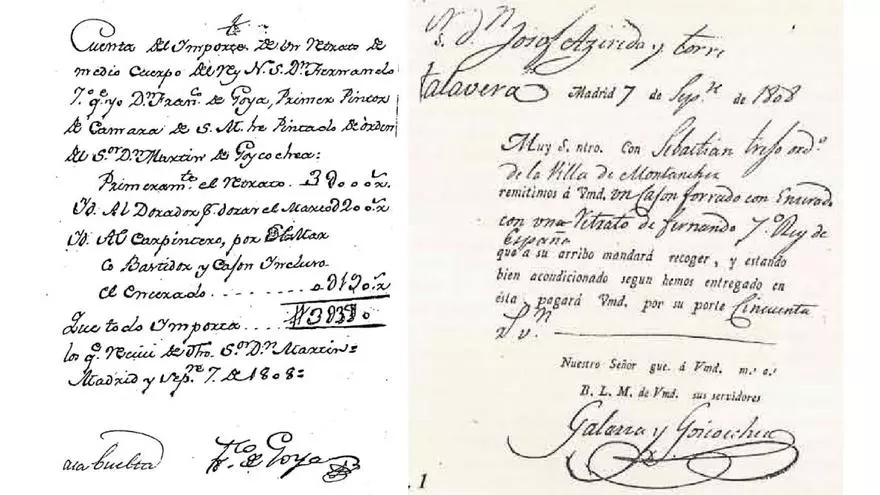 Cuenta del Importe de un Retrato de
medio Cuerpo del Rey N. S. Dn. Fernando
7.º q.e yo Dn. Fran.co de Goya, Primer Pintor
de Camara de S. M. he Pintado de órden
del S.or Dn. Martin de Goycochea:
Primeram.te el Retrato. 3000 r.s
Yd. Al Dorador p.r dorar el Marco
Yd. Al Carpintero, por El Mar
co Bastidor y Cajon Incluso
el Encerado
Que todo Importa
los q.e Reciví de dho. S.or Dn. Martin=
Madrid y Sep.re 7. de 1808=
a la buelta
Fr.co de Goya
S. Dn. Josef Azireda y torre
talavera
Madrid 7 de Sep.re de 1808
Muy S. ntro. Con Sebastián ord.o
de la Villa de Montanchez
remitimos á Vmd. un Cajon forrado con Encerado
con una Retrato de fernando 7.º Rey de
España
que a su arribo mandará recoger, y estando
bien acondicionado segun hemos entregado en
ésta pagará Vmd. por su porte Cincuenta
r.s v.n
Nuestro Señor gue. á Vmd. m.s a.s
B. L. M. de Vmd. sus servidores
Galarza y Goicoechea
. 1